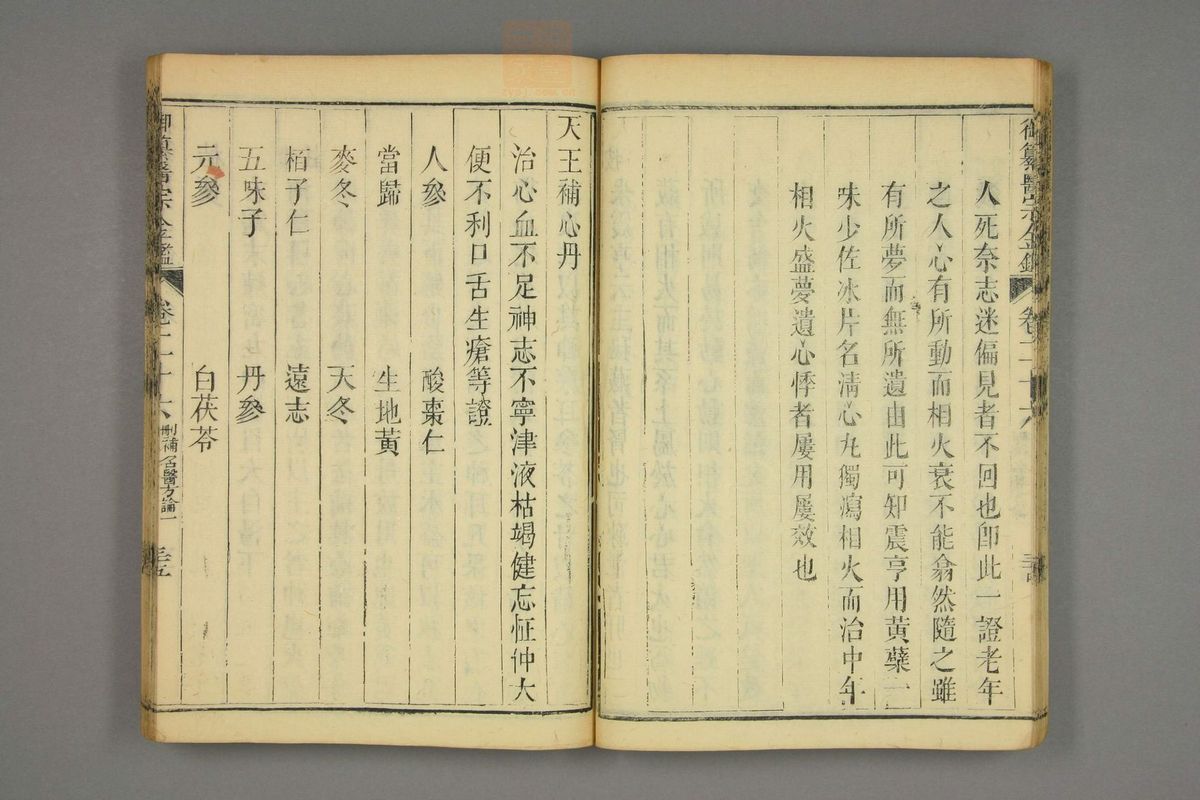 御纂醫宗金鑑 卷二十六
人死奈志迷偏見者不回也卽此一證老年
之人心有所動而相火衰不能翕然隨之雖
有所夢而無所遺由此可知震亨用黃蘗一
味少佐冰片名淸心丸獨瀉相火而治中年
相火盛夢遺心悸者屢用屢效也
天王補心丹
治心血不足神志不寧津液枯竭健忘怔忡大
便不利口舌生瘡等證
人參 酸棗仁
當歸 生地黃
麥冬 天冬
栢子仁 遠志
五味子 丹參
元參 白茯苓
御纂醫宗金鑑 卷二十六 刪補名醫方論一 三五